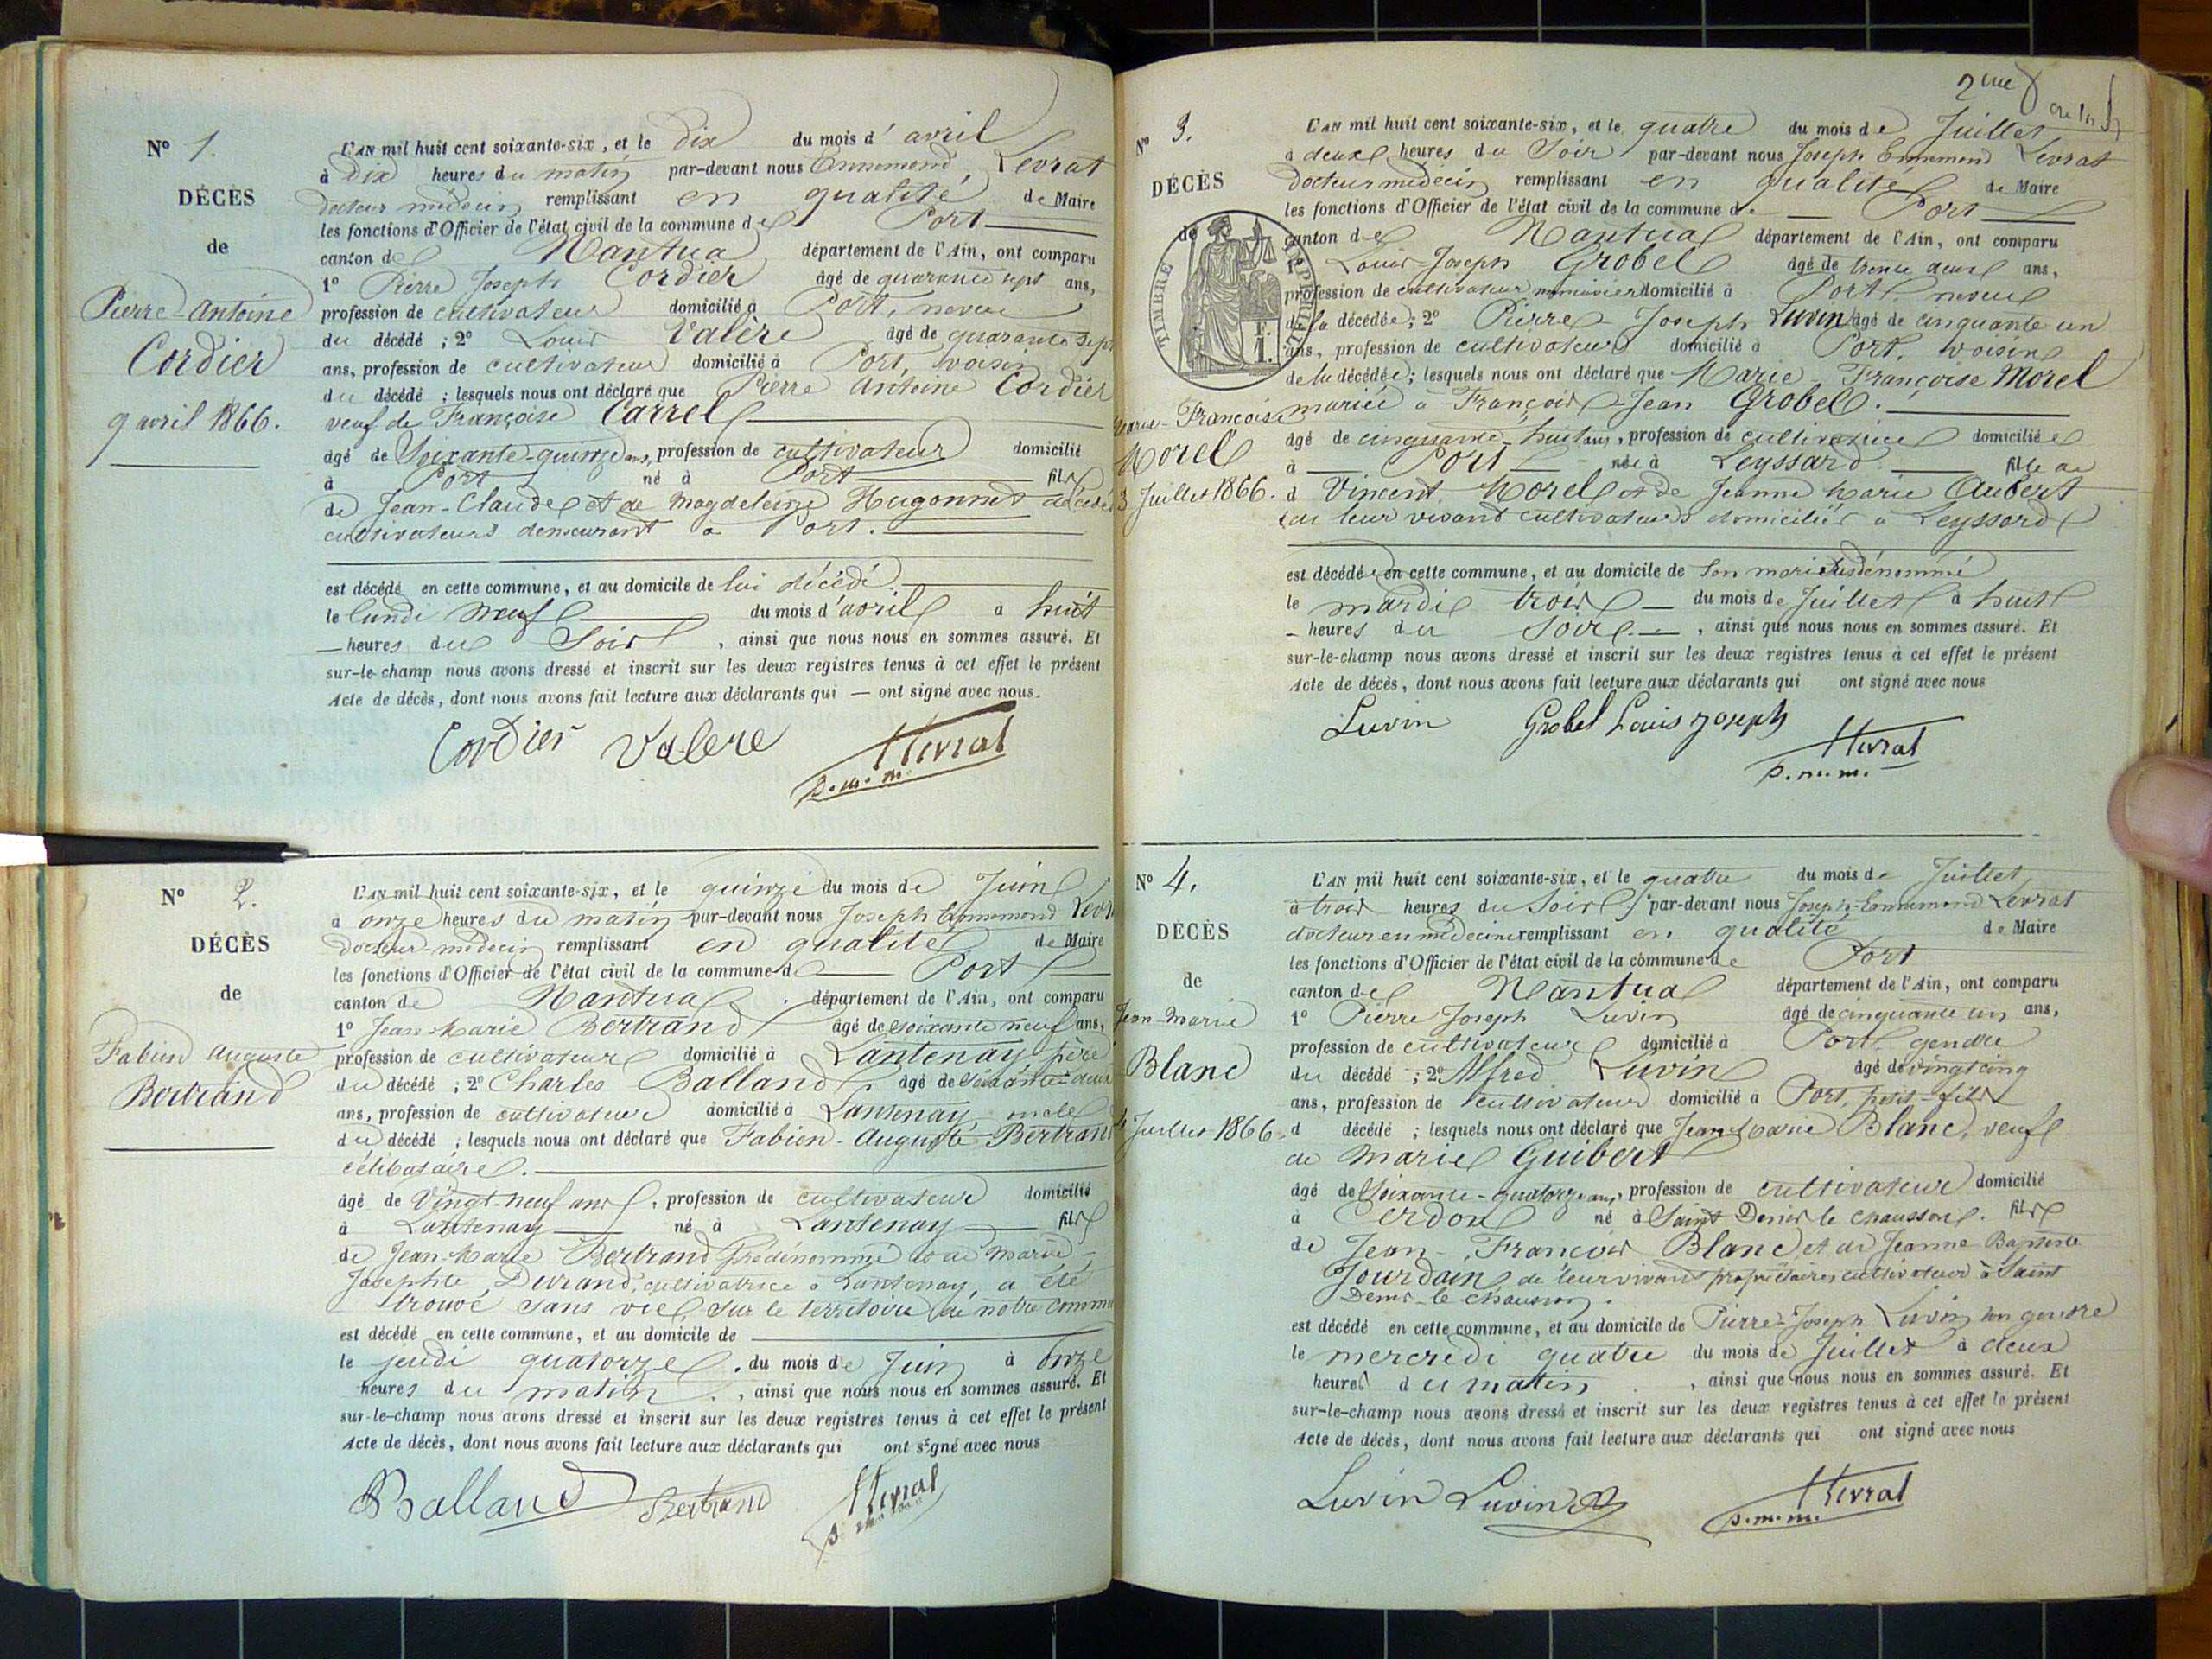 N° 1.
DÉCÈS
de
Pierre-Antoine
Cordier
9 avril 1866.
L'AN mil huit cent soixante-six, et le dix du mois d'avril
à Dix heures du matin par-devant nous Ennemond, Levrat
docteur médecin remplissant en qualité de Maire
les fonctions d'Officier de l'état civil de la commune de Port
canton de Nantua département de l'Ain, ont comparu
1° Pierre Joseph Cordier âgé de quarante sept ans,
profession de cultivateur domicilié à Port, neveu
du décédé ; 2° Louis Valère âgé de quarante sept
ans, profession de cultivateur domicilié à Port, voisin
du décédé ; lesquels nous ont déclaré que Pierre Antoine Cordier
veuf de Françoise Carrel
âgé de Soixante-quinze ans, profession de cultivateur domicilié
à Port né à Port fils
de Jean-Claude et de Magdeleine Hugonnet décédés
cultivateurs demeurant à Port.
est décédé en cette commune, et au domicile de lui décédé
le lundi neuf du mois d'avril à huit
heures du Soir, ainsi que nous nous en sommes assuré. Et
sur-le-champ nous avons dressé et inscrit sur les deux registres tenus à cet effet le présent
Acte de décès, dont nous avons fait lecture aux déclarants qui — ont signé avec nous.
Cordier Valere Levrat
N° 2.
DÉCÈS
de
Fabien Auguste
Bertrand
L'AN mil huit cent soixante-six, et le quinze du mois de Juin
à onze heures du matin par-devant nous Joseph Ennemond Levr
Docteur-médecin remplissant en qualité de Maire
les fonctions d'Officier de l'état civil de la commune de Port
canton de Nantua département de l'Ain, ont comparu
1° Jean-Marie Bertrand âgé de soixante neuf ans,
profession de cultivateur domicilié à Lantenay père
du décédé ; 2° Charles Balland âgé de soixante-deux
ans, profession de cultivateur domicilié à Lantenay
du décédé ; lesquels nous ont déclaré que Fabien-Auguste Bertrand
célibataire.
âgé de Vingt-neuf ans, profession de cultivateur domicilié
à Lantenay né à Lantenay fils
de Jean-Marie Bertrand prédénommé et de Marie-
Josephte Durand, cultivatrice à Lantenay, a été
trouvé sans vie, sur le territoire de notre commu
est décédé en cette commune, et au domicile de
le jeudi quatorze du mois de Juin à onze
heures du matin, ainsi que nous nous en sommes assuré. Et
sur-le-champ nous avons dressé et inscrit sur les deux registres tenus à cet effet le présent
Acte de décès, dont nous avons fait lecture aux déclarants qui ont signé avec nous
Balland Bertrand Levrat
2me
N° 3.
DÉCÈS
de
TIMBRE IMPÉRIAL
F.
1.
Marie-Françoise
Morel
3 Juillet 1866.
L'AN mil huit cent soixante-six, et le quatre du mois de Juillet
à deux heures du Soir par-devant nous Joseph Ennemond Levrat
Docteur médecin remplissant en qualité de Maire
les fonctions d'Officier de l'état civil de la commune de Port
canton de Nantua département de l'Ain, ont comparu
1° Louis-Joseph Grobel âgé de trente deux ans,
profession de cultivateur domicilié à Port, neveu
de la décédée ; 2° Pierre-Joseph Luvin âgé de cinquante un
ans, profession de cultivateur domicilié à Port, voisin
de la décédée ; lesquels nous ont déclaré que Marie-Françoise Morel
mariée à François-Jean Grobel.
âgé de cinquante-huit ans, profession de cultivatrice domiciliée
à Port née à Leyssard fille de
d Vincent Morel et de Jeanne Marie Aubert
de leur vivant cultivateurs domiciliés à Leyssard
est décédée en cette commune, et au domicile de son mari susdénommé
le mardi trois du mois de Juillet à huit
heures du Soir, ainsi que nous nous en sommes assuré. Et
sur-le-champ nous avons dressé et inscrit sur les deux registres tenus à cet effet le présent
Acte de décès, dont nous avons fait lecture aux déclarants qui ont signé avec nous
Luvin Grobel Louis Joseph Levrat
N° 4.
DÉCÈS
de
Jean-Marie
Blanc
4 Juillet 1866.
L'AN mil huit cent soixante-six, et le quatre du mois de Juillet
à trois heures du Soir par-devant nous Joseph-Ennemond Levrat
docteur en médecine remplissant en qualité de Maire
les fonctions d'Officier de l'état civil de la commune de Port
canton de Nantua département de l'Ain, ont comparu
1° Pierre Joseph Luvin âgé de cinquante un ans,
profession de cultivateur domicilié à Port, gendre
du décédé ; 2° Alfred Luvin âgé de vingt cinq
ans, profession de cultivateur domicilié à Port, petit-fils
d décédé ; lesquels nous ont déclaré que Jean-Marie Blanc, veuf
de Marie Guibert
âgé de Soixante-quatorze ans, profession de cultivateur domicilié
à Cerdon né à Saint Denis le chausson. fils
de Jean-François Blanc et de Jeanne-Baptiste
Jourdain de leur vivant propriétaires cultivateurs à Saint
Denis-le chausson.
est décédé en cette commune, et au domicile de Pierre-Joseph Luvin son gendre
le mercredi quatre du mois de Juillet à deux
heures du matin, ainsi que nous nous en sommes assuré. Et
sur-le-champ nous avons dressé et inscrit sur les deux registres tenus à cet effet le présent
Acte de décès, dont nous avons fait lecture aux déclarants qui ont signé avec nous
Luvin Luvin Levrat